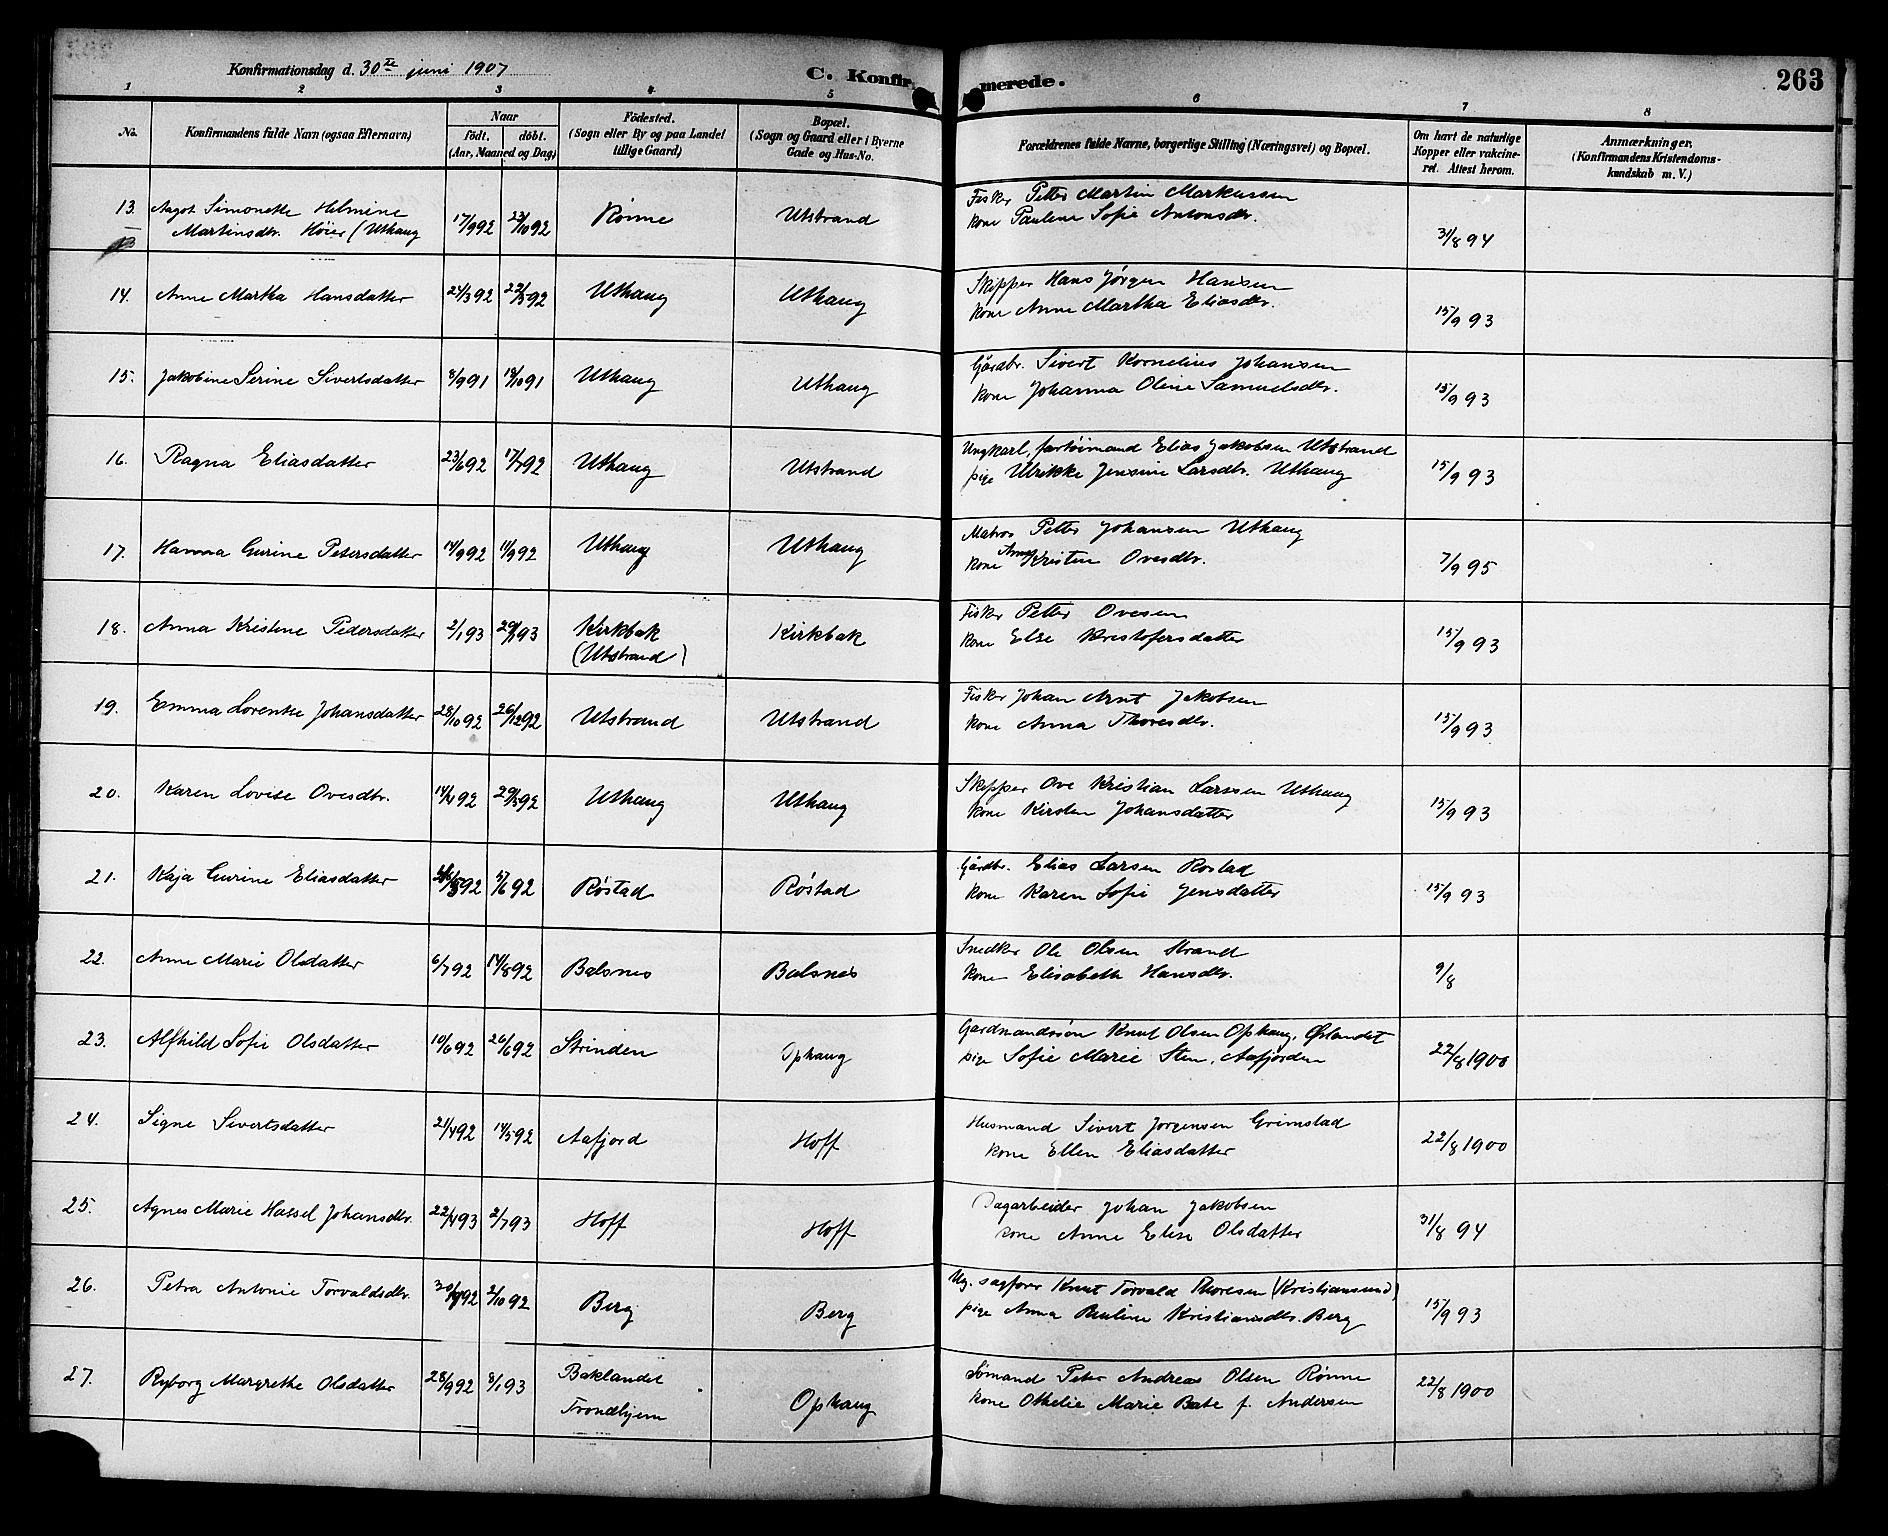 Konfirmationsdag d. 30te juni 1907
C. Konfirmerede.
263
1 2 3 4 5 6 7 8
No. Konfirmandens fulde Navn (ogsaa Efternavn) Naar födt. döbt. (Aar, Maaned og Dag) Födested. (Sogn eller By og paa Landet tillige Gaard) Bopæl. (Sogn og Gaard eller i Byerne Gade og Hus-No. Forældrenes fulde Navne, borgerlige Stilling (Næringsvei) og Bopæl. Om havt de naturlige Kopper eller vakcineret. Attest herom. Anmærkninger. (Konfirmandens Kristendomskundskab m. V.)
13. Aagot Simonette Helmine 17/9 92 23/10 92 Rønne Utstrand Fisker Petter Martin Markussen
Martinsdtr. Høier (Uthaug kone Pauline Sofie Antonsdtr. 31/8 94
14. Anne Martha Hansdatter 24/3 92 22/5 92 Uthaug Uthaug Skipper Hans Jørgen Hansen
kone Anne Martha Eliasdtr. 15/9 93
15. Jakobine Serine Sivertsdatter 8/9 91 18/10 91 Uthaug Uthaug Gårdbr. Sivert Kornelius Johansen
kone Johanna Oline Samuelsdtr. 15/9 93
16. Ragna Eliasdatter 23/6 92 17/7 92 Uthaug Utstrand Ungkarl, fartøimand Elias Jakobsen Utstrand
pige Ulrikke Jensine Larsdtr. Uthaug 15/9 93
17. Hanna Gurine Petersdatter 14/9 92 Uthaug Uthaug Matros Petter Johansen Uthaug
kone Anne Kristine Ovesdtr. 7/9 95
18. Anna Kristine Pedersdatter 2/1 93 29/1 93 Kirkbak Kirkbak Fisker Petter Ovesen
(Utstrand) kone Else Kristofersdatter 15/9 93
19. Emma Lorentse Johansdatter 28/10 92 26/12 92 Utstrand Utstrand Fisker Johan Arnt Jakobsen
kone Anna Thoresdtr. 15/9 93
20. Karen Lovise Ovesdtr. 14/4 92 29/5 92 Uthaug Uthaug Skipper Ove Kristian Larssen Uthaug
kone Kirsten Johansdatter 15/9 93
21. Kaja Gurine Eliasdatter 5/6 92 Røstad Røstad Gårdbr. Elias Larsen Rostad
kone Karen Sofie Jensdatter 15/9 93
22. Anne Marie Olsdatter 6/7 92 14/8 92 Balsnes Balsnes Snedker Ole Olsen Strand
kone Elisabeth Hansdtr. 9/8
23. Alfhild Sofie Olsdatter 10/6 92 26/6 92 Strinden Ophaug Gardmandssøn Knut Olsen Ophaug, Ørlandet
pige Sofie Marie Sten, Aafjorden 22/8 1900
24. Signe Sivertsdatter 21/4 92 14/5 92 Aafjord Hoff Husmand Sivert Jørgensen Grimstad
kone Ellen Eliasdatter 22/8 1900
25. Agnes Marie Hassel Johansdtr. 22/4 93 2/7 93 Hoff Hoff Dagarbeider Johan Jakobsen
kone Anne Elise Olsdatter 31/8 94
26. Petra Antonie Torvaldsdtr. 2/10 92 Berg Berg Ug. sagfører Knut Torvald Thoresen (Kristiansund)
pige Anna Pauline Kristiansdtr. Berg 15/9 93
27. Ryborg Margrethe Olsdatter 28/9 92 8/1 93 Baklandet Ophaug Sømand Peter Andreas Olsen Rønne
Trondhjem kone Othelie Marie Bate f. Andersen 22/8 1900